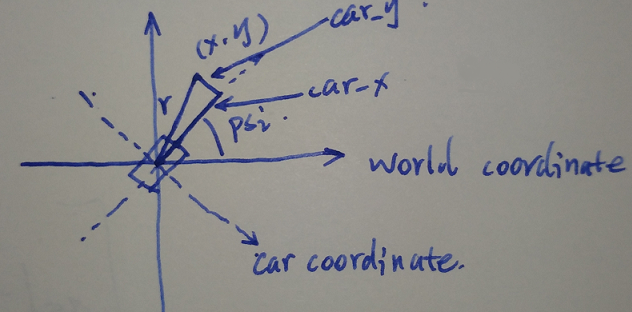 car_y.
(x.y)
r
car_x
psi.
world coordinate
car coordinate.